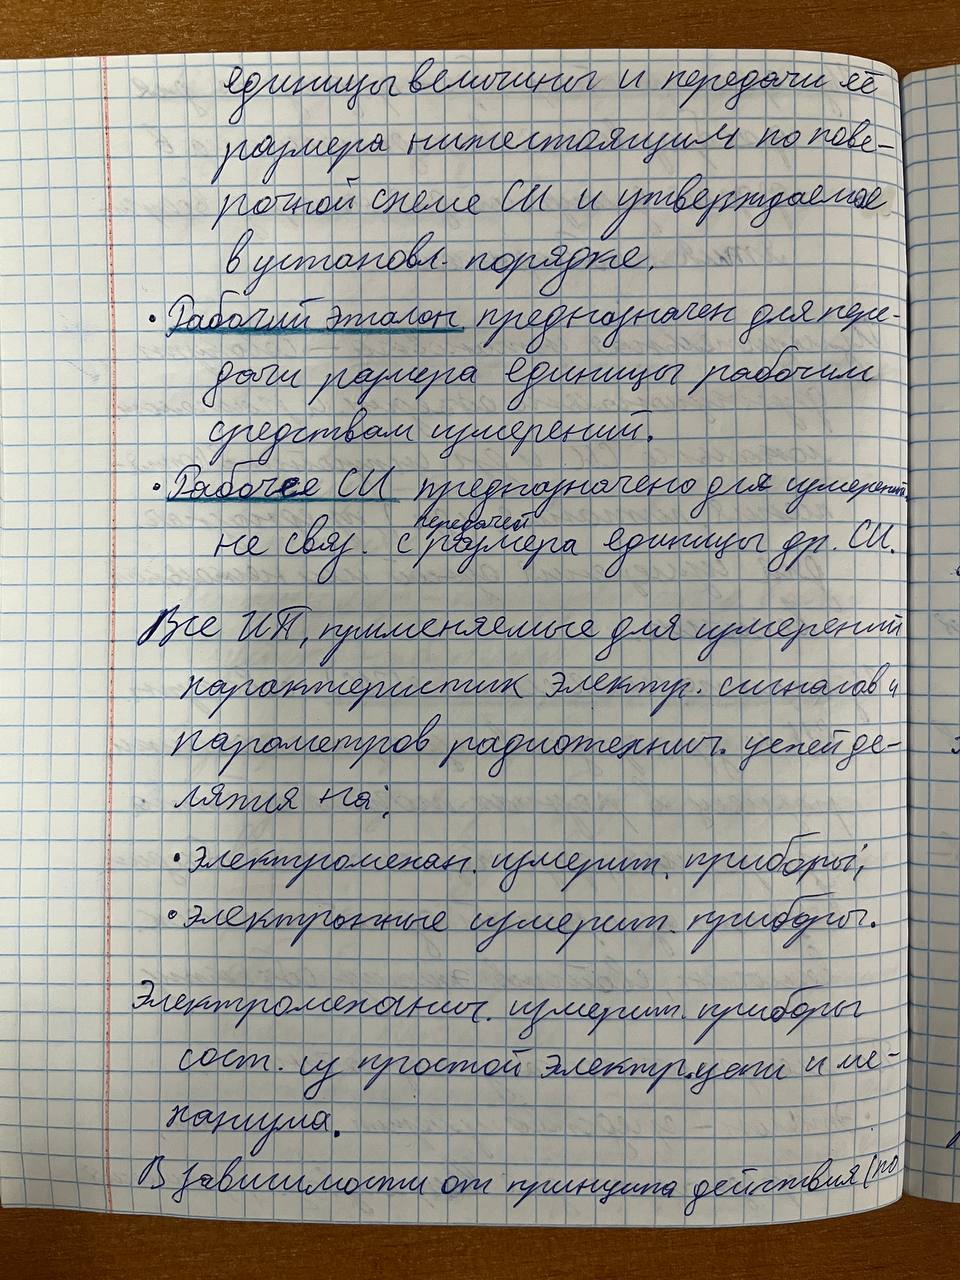 единицы величины и передачи её
размера нижестоящим по пове-
рочной схеме СИ и утверждаемое
в установл. порядке.
• Рабочий эталон предназначен для пере-
дачи размера единицы рабочим
средствам измерений.
• Рабочее СИ предназначено для измерений,
передачей
не связ. с размера единицы др. СИ.
Все ИП, применяемые для измерений
характеристик электр. сигналов и
параметров радиотехнич. цепей де-
лятся на:
• электромехан. измерит. приборы;
• электронные измерит. приборы.
Электромеханич. измерит. приборы
сост. из простой электр. цепи и ме-
ханизма.
В зависимости от принципа действия (по